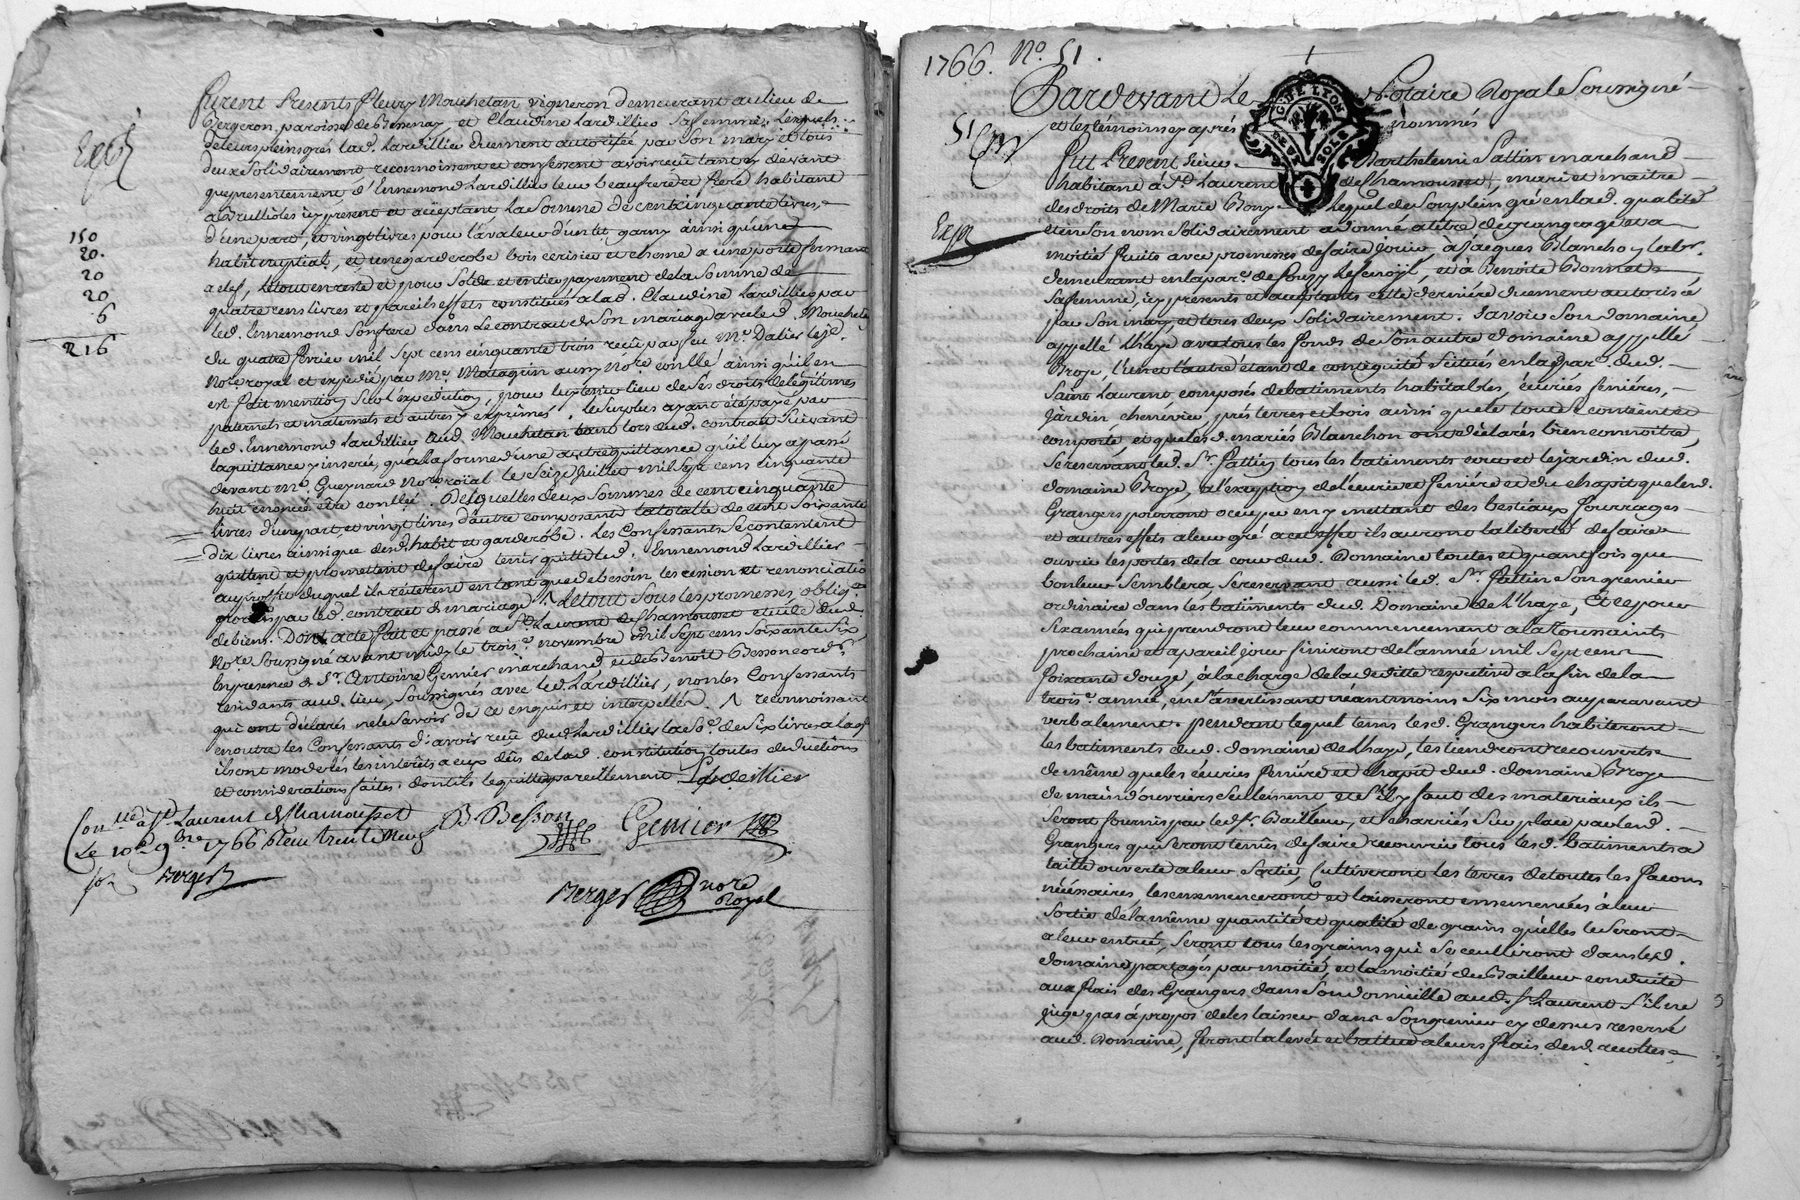 furent Presents fleury Mouchetan vigneron demeurant au lieu de
Bergeron paroisse de Bessenay et Claudine Lardillier sa femme, Lesquels
de leurs pleins grés lad. Lardillier duement autorisée par son mary et tous
deux solidairement reconnoissent et confessent avoir reçu tant cy devant
que presentement d'Ennemond Lardillier leur beaufrere et frere habitant
a Brullioles icy present et acceptant La somme de cent cinquante livres
d'une part, et vingt livres pour la valeur d'un lit garny ainsi qu'un
habit nuptial, et une garderobe bois cerisier et chesne a une porte fermant
a clef, Le tout en reste et pour solde et entier payement de la somme de
quatre cens livres et pareils effets constitués a lad. Claudine Lardillier par
led. Ennemond son frere dans le contrat de son mariage avec led. Mouchetan
du quatre fevrier mil sept cens cinquante trois reçu par feu Me. Dalier lejd.
Nore. royal et expedié par Me. aussy Nore. ainsi qu'il en
est fait mention sur l'expedition, pour luy tenir lieu de ses droits de legitimes
paternels et maternels et autres y exprimés. Le surplus ayant été payé par
led. Ennemond Lardillier aud. Mouchetan tant lors dud. contrat suivant
la quittance y inserée, qu'a la forme d'une autre quittance qu'il luy a passé
devant Me. Gueynard Nore. roial le seize juillet mil sept cens cinquante
huit enoncée être conllée. Desquelles deux sommes de cent cinquante
livres d'une part, et vingt livres d'autre composants la totalle de cent soixante
dix livres ainsi que desd. habit et garderobe. Les Confessants se contentent
quittent et promettent de faire tenir quitte led. Ennemond Lardillier
au profit duquel ils réiterent en tant que de besoin les cession et renonciation
portées par led. contract de mariage Λ Le tout sous les promesses, oblig.on
de biens. Dont acte fait et passé a St. Laurent de Chamousset etude dud.
Nore. soussigné avant midy le trois.e novembre mil sept cens soixante six
En presence de Sr. Antoine Gemier marchand et de Benoît Besson cordr.
residants aud. lieu, soussignés avec led. Lardillier, non les Confessants
qui ont déclarés ne le savoir de ce enquis et interpellés. Λ reconnoissant
en outre les Confessants d'avoir reçu dud. Lardillier la se. de six livres a laq.
ils ont moderés les interêts a eux dûs de lad. constitution toutes deductions
et considerations faites. dont ils le quittent pareillement Lardeillier
Expé
150
20.
20
20
6
216
Con.llé a St. Laurent de Chamousset
Le 10e. 9bre 1766 Reçu trente neuf
Berger
B Besson
Gemier
Berger nore
Royal
1766. No. 51.
Pardevant Le Notaire Royal Soussigné
et les témoins cy aprés nommés
51
Expé
G. DE LYON
DEUX SOLS
Fut Present sieur Barthelemi Pattin marchand
habitant à St. Laurent de Chamousset, mari et maitre
des droits de Marie Bony Lequel de son plein gré en lad. qualité
et en son nom solidairement a donné a titre de grangeage et a
moitié fruits avec promesses de faire Jouir, à Jacques Blanchon labr.
demeurant en la par. de Souzy , et à Benoite Bonnet
sa femme, icy presents et acceptants cette derniére duement autorisée
par son mary et tous deux solidairement. Savoir son domaine
appellé Lhaye avec tous les fonds de son autre domaine appellé
Broye, l'un et l'autre étant de contiguité situés en lad. par. dud.
Saint Laurent composés de batiments habitables, écuries fenières,
Jardin cheneviere, prés terres et bois ainsi que le tout se contient et
comporte, et que lesd. mariés Blanchon ont déclarés bien connoitre,
se reservant led. Sr. Pattin tous les batiments cour et le jardin dud.
domaine Broye, a l'exception de l'écurie et feniere et du chapit que lesd.
Grangers pourront occuper en y mettant des bestiaux fourrages
et autres effets a leur gré a cet effet ils auront la liberté de faire
ouvrir les portes de la cour dud. Domaine toutes et quantes fois que
bon leur semblera, se reservant aussi led. Sr. Pattin son grenier
ordinaire dans les batiments dud. Domaine de Lhaye, Et ce pour
six années qui prendront leur commencement a la Toussaints
prochaine et a pareil jour finiront de l'année mil sept cens
soixante douze, à la charge de la deditte respective a la fin de la
trois.e année, en s'avertissant néantmoins six mois auparavant
verbalement. pendant lequel tems lesd. Grangers habiteront
les batiments dud. domaine de Lhaye, les tiendront recouverts
de même que les écuries feniére et chapit dud. domaine Broye
de main d'ouvriers seulement et s'il y faut des materiaux ils
seront fournis par led. Sr. Bailleur, et charriés sur place par lesd.
Grangers qui seront tenus de faire recouvrir tous lesd. batiments a
taille ouverte a leur sortie, Cultiveront les terres de toutes les façons
nécéssaires, les ensemenceront et laisseront ensemencées à leur
sortie de la même quantité et qualité de grains qu'elles le seront
a leur entrée, seront tous les grains qui se ceuilliront dans led.
domaine partagés par moitié, et la moitié du Bailleur conduite
aux frais des Grangers dans son domicille aud. St. Laurent s'il ne
juge pas à propos de les laisser dans son grenier cy dessus reservé
aud. Domaine, feront la levée et battue a leurs frais desd. recoltes